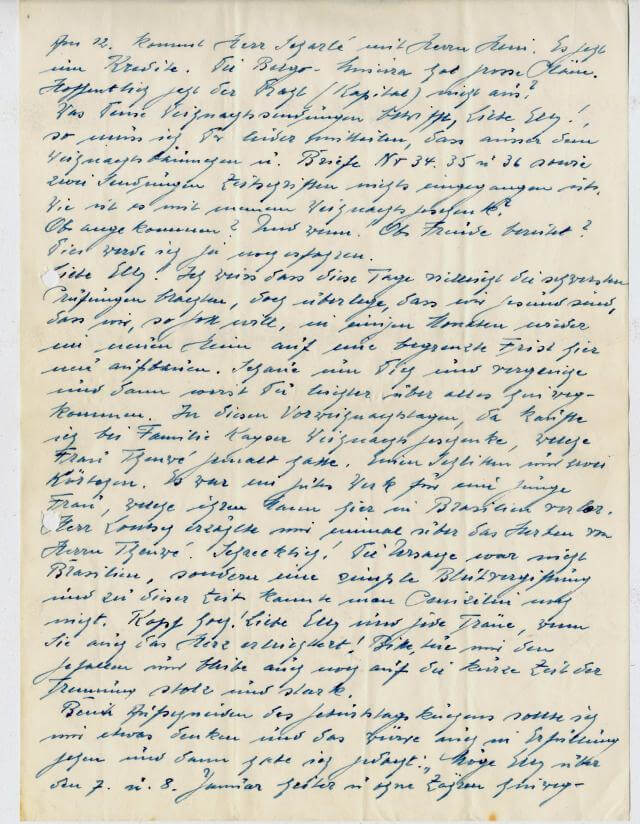 Am 22. kommt Herr Scharlé mit Herrn Henri. Es geht
um Kredite. Die Belgo-Mineira hat grosse Pläne.
Hoffentlich geht der Kapital) nicht aus?
Was Deine Weihnachtssendungen betrifft, Liebe Elly!,
so muss ich Dir leider mitteilen, dass ausser dem
Weihnachtsbäumchen u. Briefe Nr 34. 35 u 36 sowie
zwei Sendungen Zeitschriften nichts eingegangen ist.
Wie ist es mit meinem Weihnachtsgeschenk?
Ob angekommen? Und wann? Ob Freude bereitet?
Dies werde ich ja noch erfahren.
Liebe Elly! Ich weiss dass diese Tage vielleicht die schwersten
Prüfungen brachten, doch überlege, dass wir gesund sind,
dass wir, so Gott will, in einigen Monaten wieder
ein neues Heim auf eine begrenzte Frist hier
neu aufbauen. Schaue um Dich und vergleiche
und dann wirst Du leichter über alles hinweg-
kommen. In diesen Vorweihnachtstagen, da kaufte
ich bei Familie Kayser Weihnachtsgeschenke, welche
Frau gemalt hatte. Einen Schlitten und zwei
Es war ein gutes Werk für eine junge
Frau, welche ihren Mann hier in Brasilien verlor.
Herr erzählte mir einmal über das Sterben von
Herrn Schrecklich! Die Ursache war nicht
Brasilien, sondern eine simple Blutvergiftung
und zu dieser Zeit kannte man Penizilin noch
nicht. Kopf hoch! Liebe Elly und jede Träne, wenn
Sie auch das Herz erleichtert! Bitte, tue mir den
Gefallen und bleibe auch noch auf die kurze Zeit der
Trennung stolz und stark.
Beim Aufschneiden des Geburtstagskuchens sollte ich
mir etwas denken und das würde auch in Erfüllung
gehen und dann habe ich gedacht: „Möge Elly über
den 7. u. 8. Januar heiter u ohne Zähren hinweg-